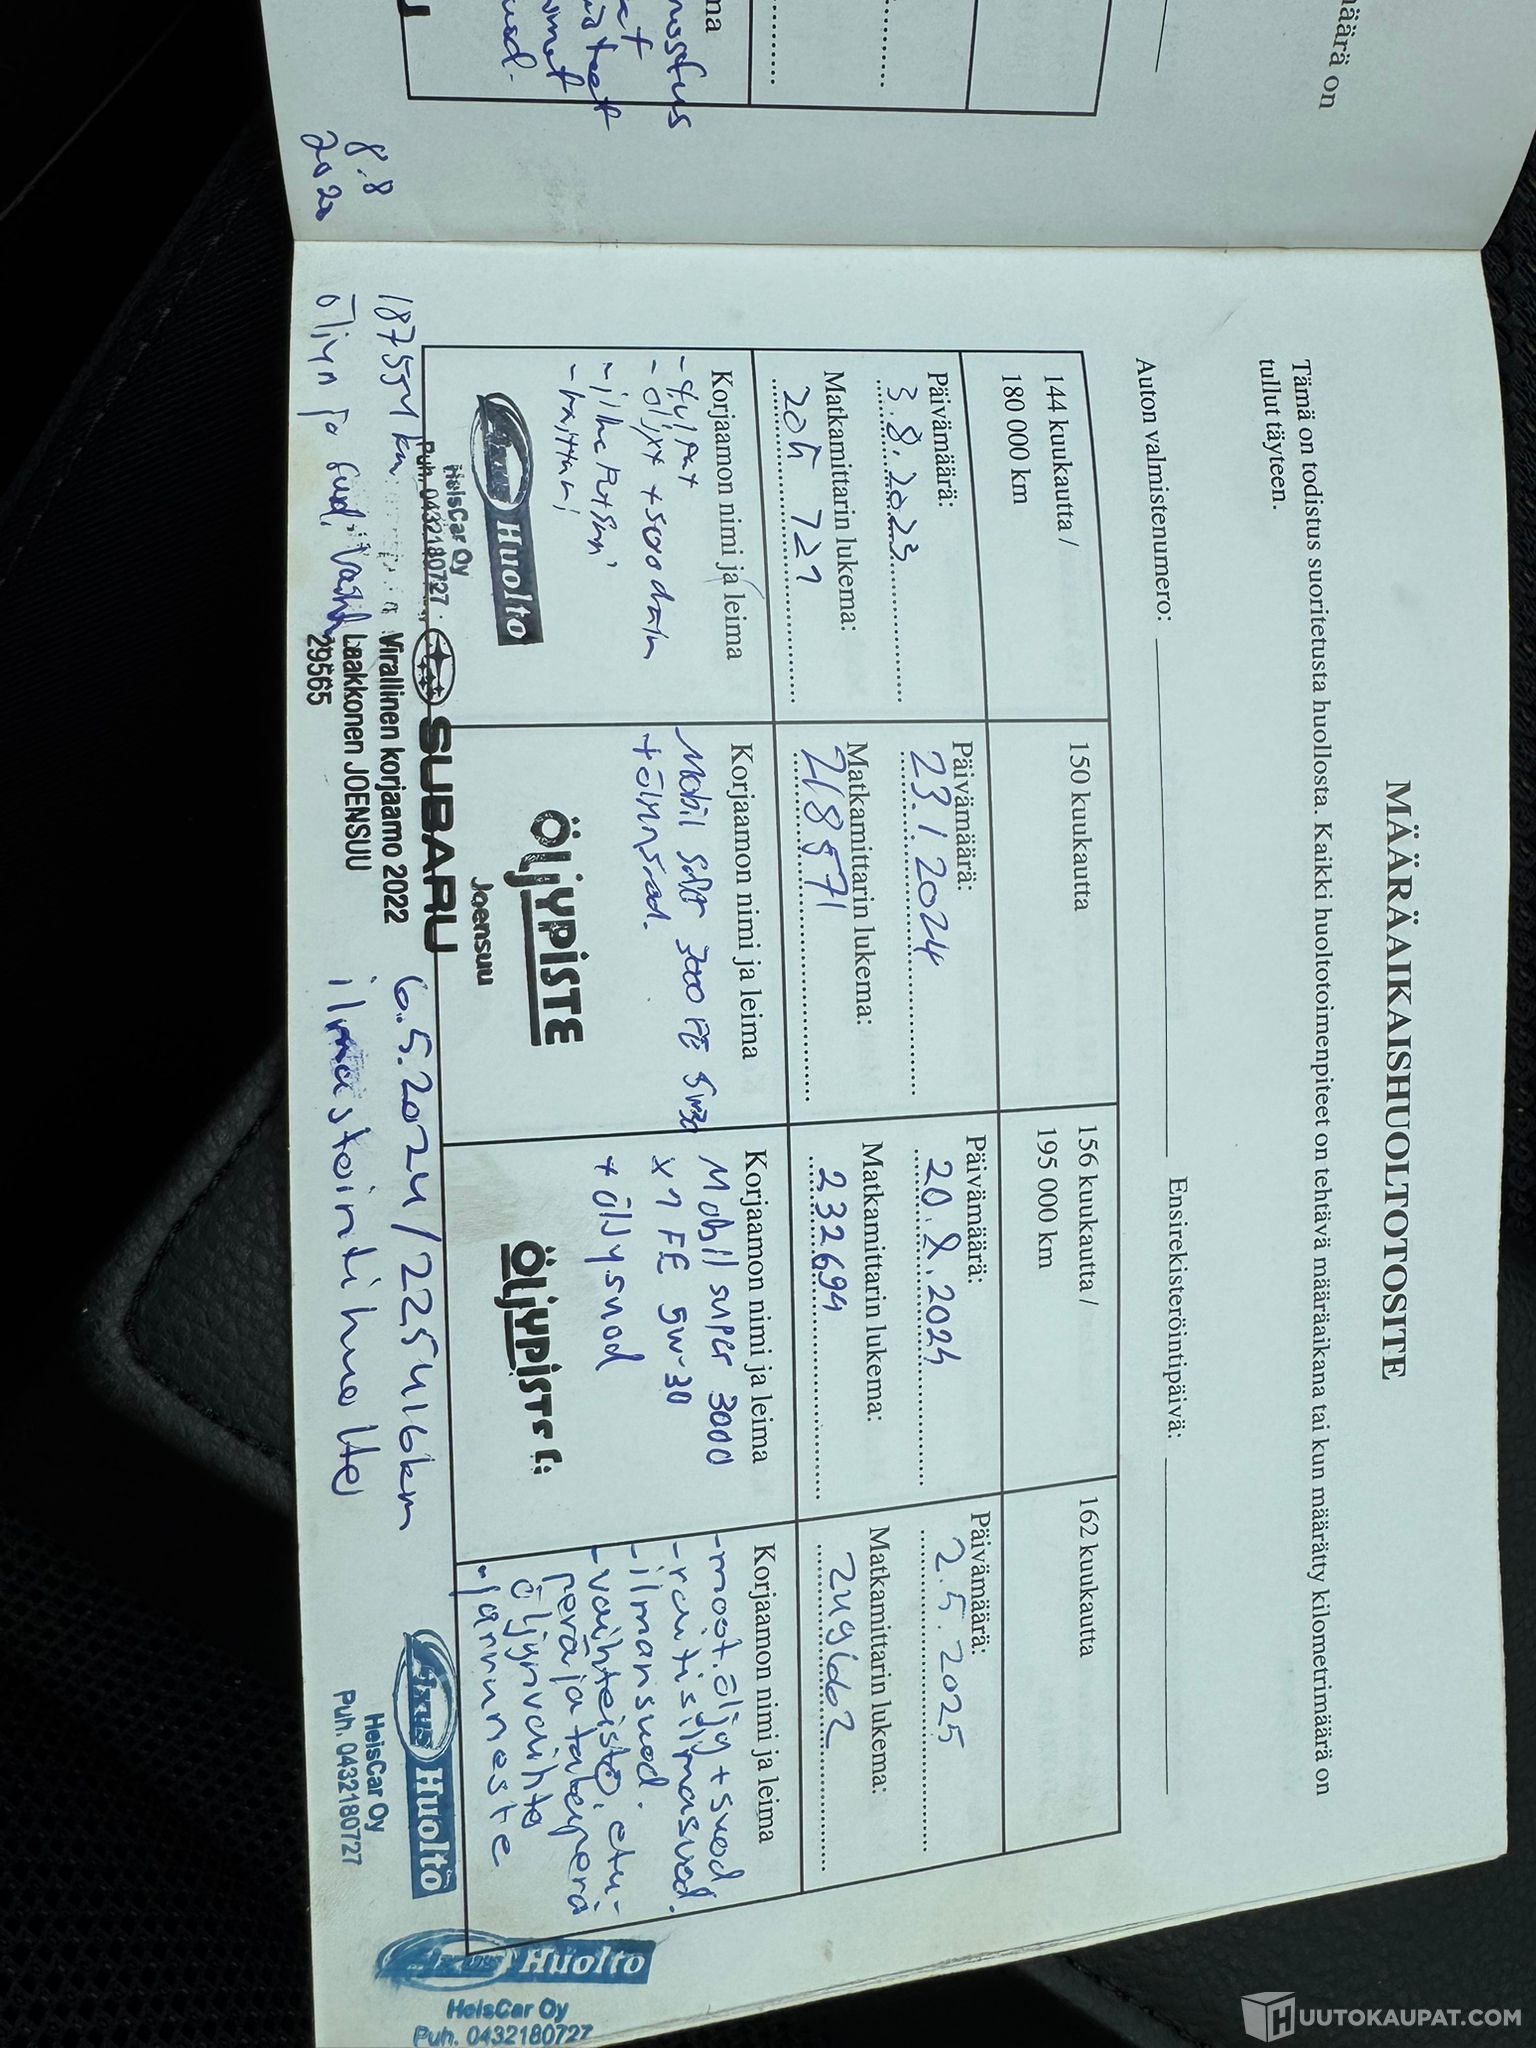 määrä on
8.8
2020
MÄÄRÄAIKAISHUOLTOTOSITE
Tämä on todistus suoritetusta huollosta. Kaikki huoltotoimenpiteet on tehtävä määräaikana tai kun määrätty kilometrimäärä on
tullut täyteen.
Auton valmistenumero: Ensirekisteröintipäivä:
144 kuukautta /
180 000 km
Päivämäärä:
3.8.2023
Matkamittarin lukema:
Korjaamon nimi ja leima
Huolto
HeisCar Oy
Puh. 0432180727
150 kuukautta
Päivämäärä:
23.1.2024
Matkamittarin lukema:
218571
Korjaamon nimi ja leima
Mobil super 3000 FE 5w30
ÖLJYPISTE
Joensuu
156 kuukautta /
195 000 km
Päivämäärä:
20.8.2024
Matkamittarin lukema:
232694
Korjaamon nimi ja leima
Mobil super 3000
x1 FE 5w-30
+ öljysuod
ÖLJYPISTE
162 kuukautta
Päivämäärä:
2.5.2025
Matkamittarin lukema:
Korjaamon nimi ja leima
-moot.öljy+suod
-raitisilmasuod.
-ilmansuod.
-vaihteisto, etu-
perä ja takaperä
öljynvaihto
-jarruneste
öljyn ja suod. vaihto
SUBARU
Virallinen korjaamo 2022
Laakkonen JOENSUU
29565
6.5.2024/225416km
ilmastointihuolto
Fixus Huolto
HeisCar Oy
Puh. 0432180727
Huolto
HeisCar Oy
Puh. 0432180727
HUUTOKAUPAT.COM